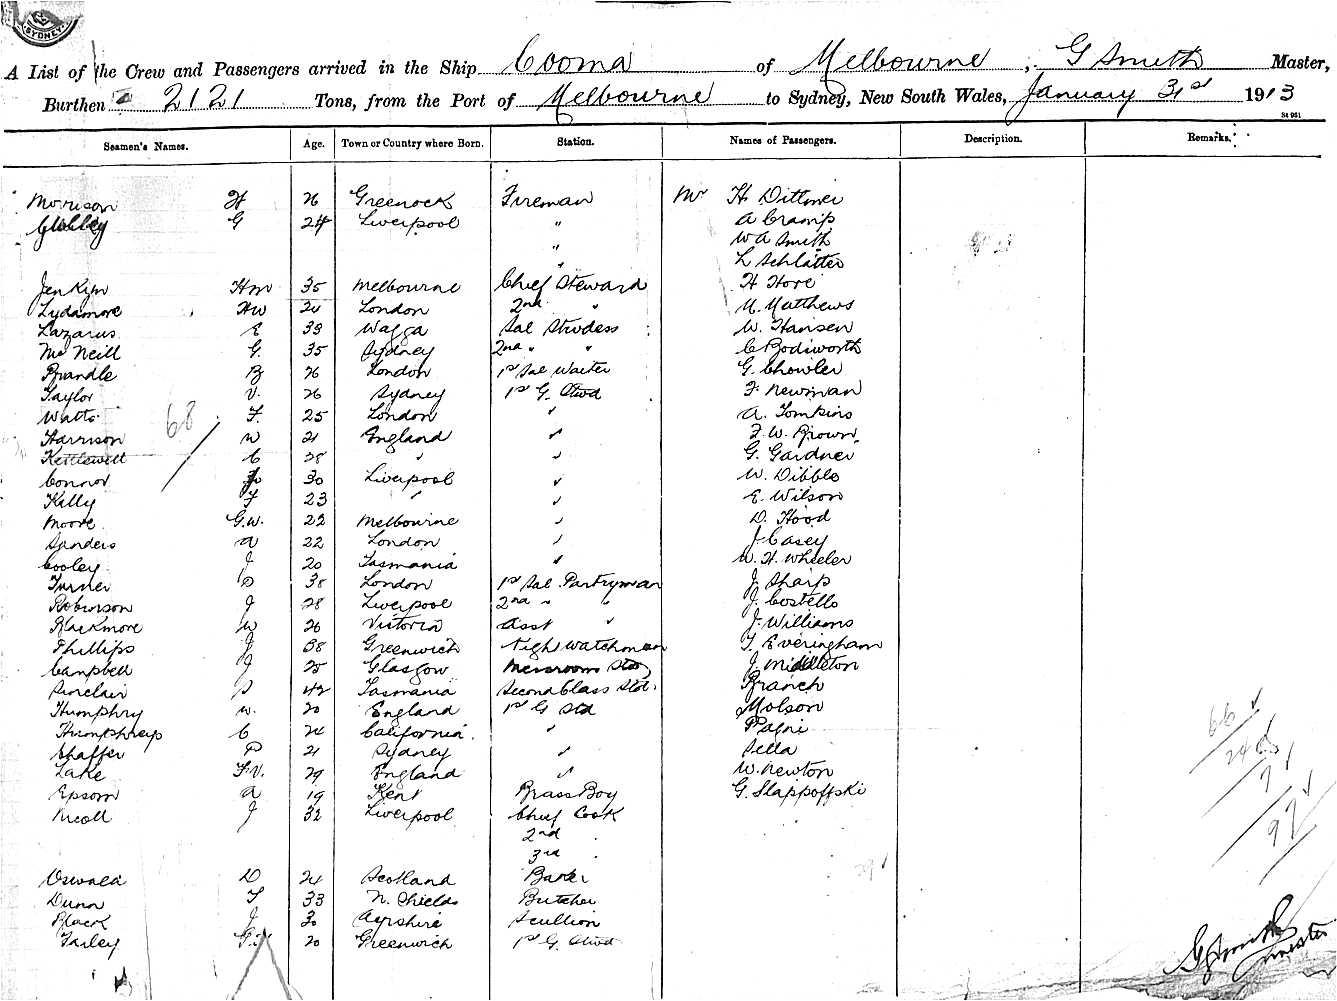 SYDNEY
A List of the Crew and Passengers arrived in the Ship Cooma of Melbourne, G Smith Master,
Burthen 2121 Tons, from the Port of Melbourne to Sydney, New South Wales, January 31st 1913
St 961
Seamen's Names. Age. Town or Country where Born. Station. Names of Passengers. Description. Remarks.
Morrison H 26 Greenock Fireman Mr H Dittmer
G 24 Liverpool " A Cramp
" W A Smith
" L Schlatter
Jenkyn Hm 35 Melbourne Chief Steward H Hore
Lydamore HW 20 London 2nd " M. Matthews
Lazarus E 38 Wagga Sal Stwdess W. Hansen
Mc Neill G. 35 Sydney 2nd " " C Bodsworth
Brandle B 26 London 1st Sal Waiter G. Chowler
Taylor V. 26 Sydney 1st G. Stwd F. Newman
Watts F. 25 London " A. Tomkins
68
Harrison W 21 England " F. W. Brown
Kettlewell C 28 " " G. Gardner
Connor 30 Liverpool " W. Dibble
Kelly F 23 " " E. Wilson
Moore G.W. 22 Melbourne " D. Hood
Sanders A 22 London " J Casey
Cooley J 20 Tasmania " W. H. Wheeler
Turner S 38 London 1st Sal Pantryman J Sharp
Robinson J 28 Liverpool 2nd " " J. Costello
Blackmore W 26 Victoria Asst " J. Williams
Phillips J 38 Greenwich Night Watchman T. Everingham
Campbell J 25 Glasgow Messroom Std J. Middleton
Sinclair S 42 Tasmania Second Class Std. Branch
Humphry W. 20 England 1st G Std Molson
Humphreys C 24 California " Pafni
Shaffer P 21 Sydney " Sella
Lake F.V. 29 England " W. Newton
Epsom A 19 Kent Brass Boy G. Slappoffski
Nicoll J 32 Liverpool Chief Cook
2nd "
3rd "
Oswald D 24 Scotland Baker
Dunn T 33 N. Shields Butcher
Black J 30 Ayrshire Scullion
Farley 20 Greenwich 1st G. Stwd
66
24
7
97
29
G Smith
Master